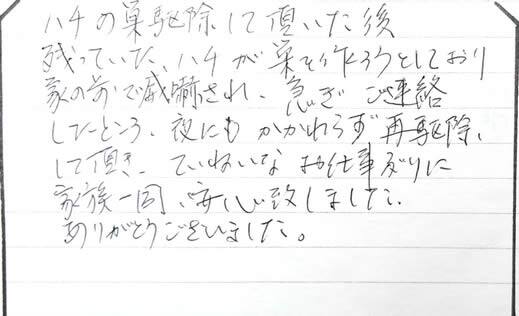 ハチの巣駆除して頂いた後
残っていた、ハチが巣を作ろうとしており
家の前で威嚇され、急ぎご連絡
したところ、夜にもかかわらず再駆除、
して頂き、ていねいなお仕事ぶりに
家族一同、安心致しました。
ありがとうございました。